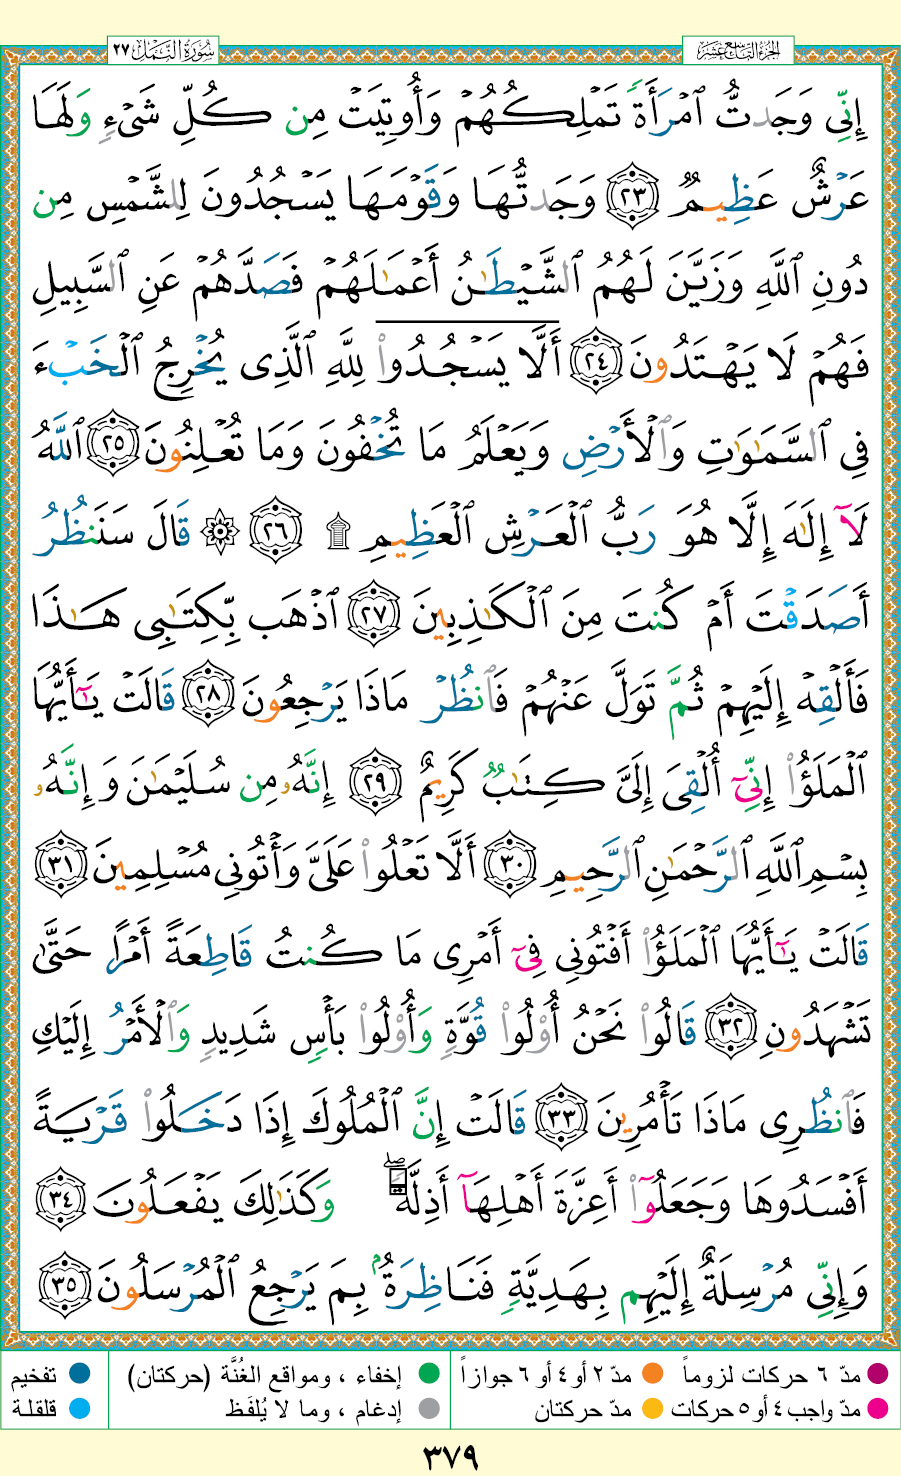 الجزء التاسع عشر
سورة النمل ٢٧
إِنِّي وَجَدتُّ ٱمْرَأَةً تَمْلِكُهُمْ وَأُوتِيَتْ مِن كُلِّ شَىْءٍ وَلَهَا
عَرْشٌ عَظِيمٌ ٢٣ وَجَدتُّهَا وَقَوْمَهَا يَسْجُدُونَ لِلشَّمْسِ مِن
دُونِ ٱللَّهِ وَزَيَّنَ لَهُمُ ٱلشَّيْطَٰنُ أَعْمَٰلَهُمْ فَصَدَّهُمْ عَنِ ٱلسَّبِيلِ
فَهُمْ لَا يَهْتَدُونَ ٢٤ أَلَّا يَسْجُدُوا۟ لِلَّهِ ٱلَّذِى يُخْرِجُ ٱلْخَبْءَ
فِى ٱلسَّمَٰوَٰتِ وَٱلْأَرْضِ وَيَعْلَمُ مَا تُخْفُونَ وَمَا تُعْلِنُونَ ٢٥ ٱللَّهُ
لَآ إِلَٰهَ إِلَّا هُوَ رَبُّ ٱلْعَرْشِ ٱلْعَظِيمِ ۩ ٢٦ ۞ قَالَ سَنَنظُرُ
أَصَدَقْتَ أَمْ كُنتَ مِنَ ٱلْكَٰذِبِينَ ٢٧ ٱذْهَب بِّكِتَٰبِى هَٰذَا
فَأَلْقِهْ إِلَيْهِمْ ثُمَّ تَوَلَّ عَنْهُمْ فَٱنظُرْ مَاذَا يَرْجِعُونَ ٢٨ قَالَتْ يَٰٓأَيُّهَا
ٱلْمَلَؤُا۟ إِنِّىٓ أُلْقِىَ إِلَىَّ كِتَٰبٌ كَرِيمٌ ٢٩ إِنَّهُۥ مِن سُلَيْمَٰنَ وَإِنَّهُۥ
بِسْمِ ٱللَّهِ ٱلرَّحْمَٰنِ ٱلرَّحِيمِ ٣٠ أَلَّا تَعْلُوا۟ عَلَىَّ وَأْتُونِى مُسْلِمِينَ ٣١
قَالَتْ يَٰٓأَيُّهَا ٱلْمَلَؤُا۟ أَفْتُونِى فِىٓ أَمْرِى مَا كُنتُ قَاطِعَةً أَمْرًا حَتَّىٰ
تَشْهَدُونِ ٣٢ قَالُوا۟ نَحْنُ أُو۟لُوا۟ قُوَّةٍ وَأُو۟لُوا۟ بَأْسٍ شَدِيدٍ وَٱلْأَمْرُ إِلَيْكِ
فَٱنظُرِى مَاذَا تَأْمُرِينَ ٣٣ قَالَتْ إِنَّ ٱلْمُلُوكَ إِذَا دَخَلُوا۟ قَرْيَةً
أَفْسَدُوهَا وَجَعَلُوٓا۟ أَعِزَّةَ أَهْلِهَآ أَذِلَّةً ۖ وَكَذَٰلِكَ يَفْعَلُونَ ٣٤
وَإِنِّى مُرْسِلَةٌ إِلَيْهِم بِهَدِيَّةٍ فَنَاظِرَةٌۢ بِمَ يَرْجِعُ ٱلْمُرْسَلُونَ ٣٥
مدّ ٦ حركات لزوماً مدّ ٢ أو ٤ أو ٦ جوازاً إخفاء ، ومواقع الغُنَّة (حركتان) تفخيم
مدّ واجب ٤ أو ٥ حركات مدّ حركتان إدغام ، وما لا يُلفَظ قلقلة
٣٧٩